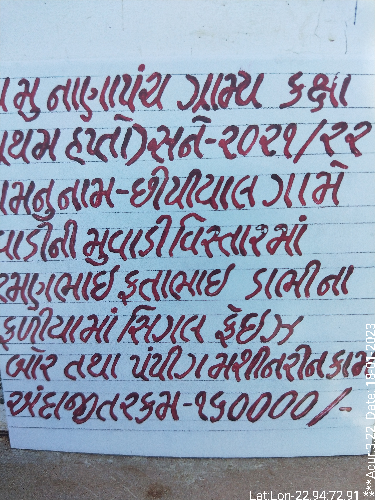 મુ નાણાપંચ ગ્રામ્ય કક્ષા
પ્રથમ હપ્તો) સને-૨૦૨૧/૨૨
ગામનુ નામ-છીપીયાલ ગામે
વાડીની મુવાડી વિસ્તારમાં
રમણભાઇ ફતાભાઇ ડાભીના
ફળીયામાં સિંગલ ફેઇઝ
બોર તથા પંપીગ મશીનરીન કામ
અંદાજીત રકમ-૧૬૦૦૦૦/-
Lat:Lon-22.94:72.91